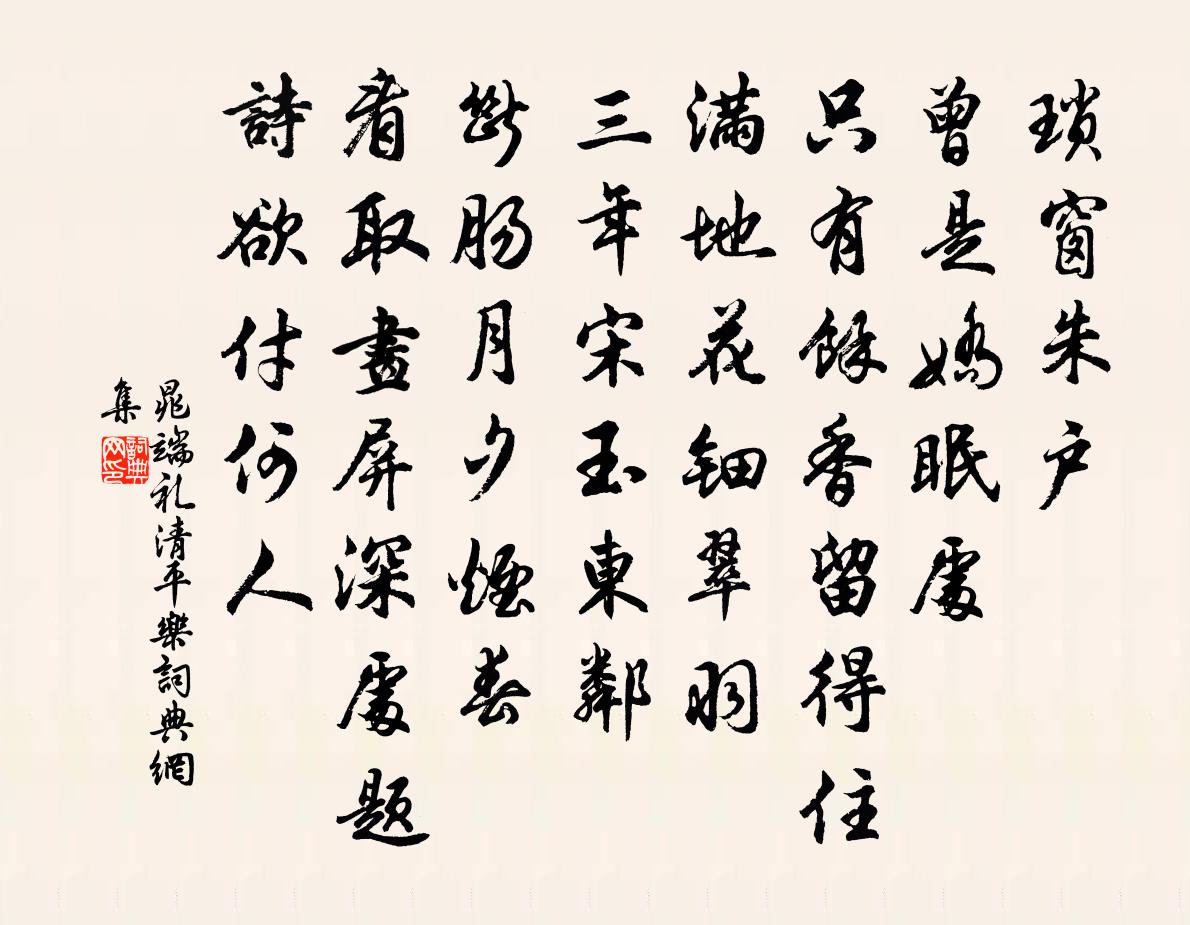 瑣窗朱户
曾是嬌眠處
只有餘香留得住
滿地花鈿翠羽
三年宋玉東鄰
斷腸月夕煙春
看取畫屏深處題
詩欲付何人
晁端礼清平樂詞典網
集
詞典
网印